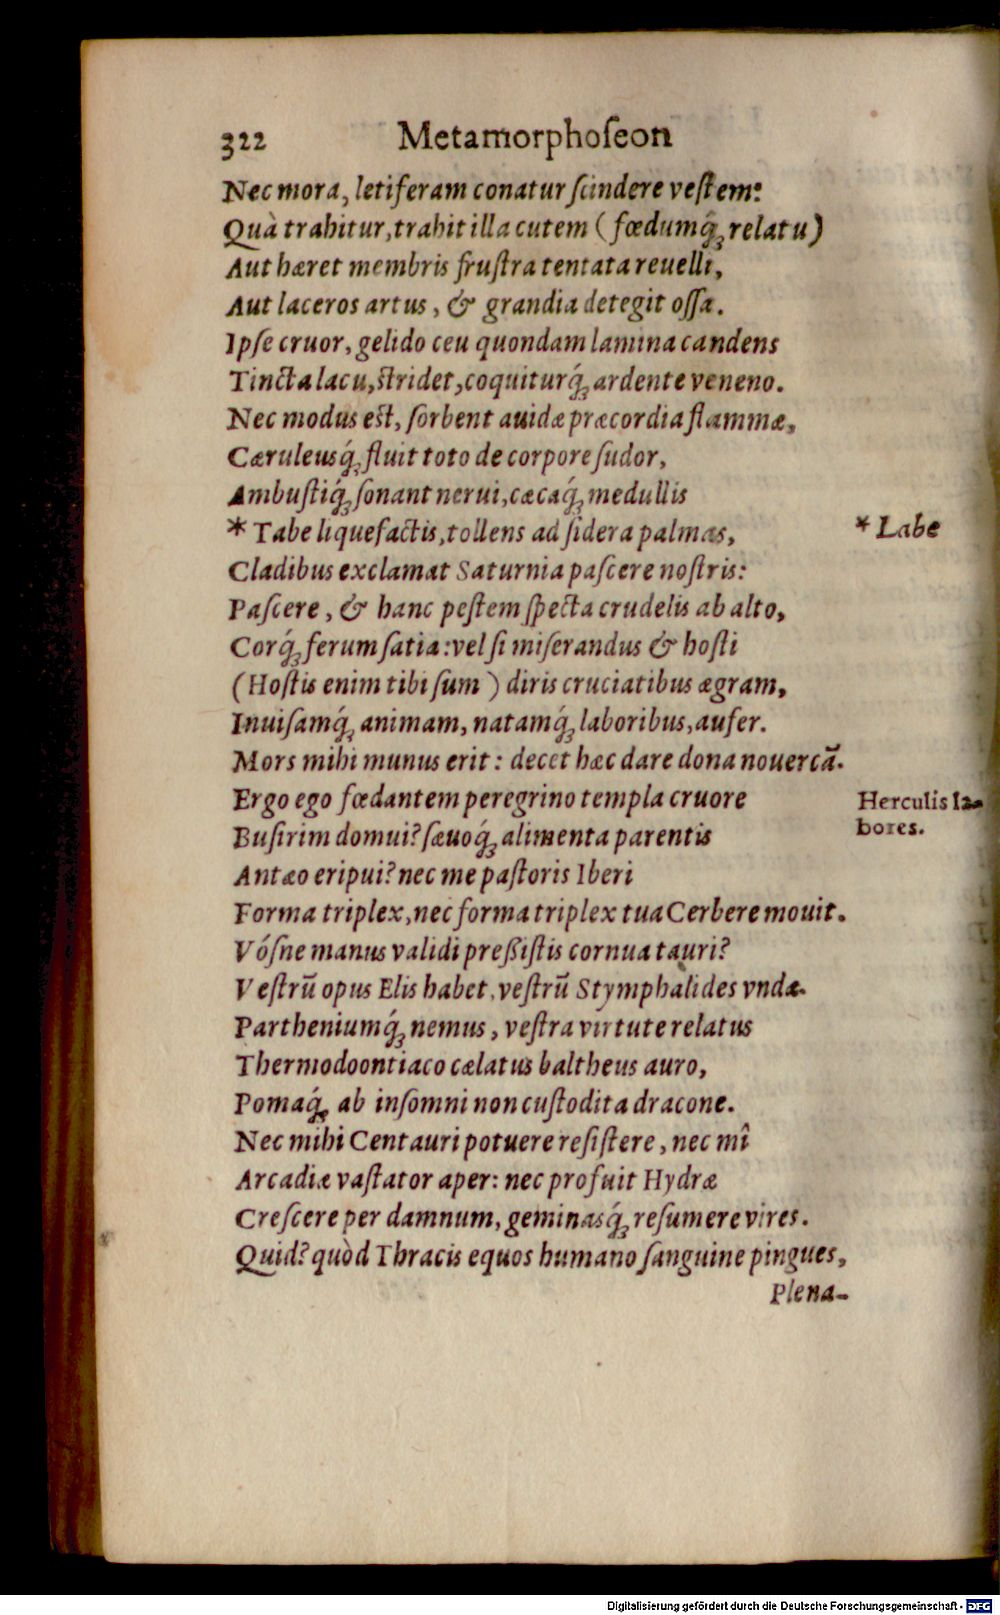 322 Metamorphoſeon
Nec mora, letiferam conatur ſcindere veſtem:
Quà trahitur, trahit illa cutem (fœdumq́ꝫ relatu)
Aut hæret membris fruſtra tentata reuelli,
Aut laceros artus, & grandia detegit oſſa.
Ipſe cruor, gelido ceu quondam lamina candens
Tincta lacu, ſtridet, coquiturq́ꝫ ardente veneno.
Nec modus eſt, ſorbent auidæ præcordia flammæ,
Cæruleusq́ꝫ fluit toto de corpore ſudor,
Ambuſtiq́ꝫ ſonant nerui, cæcaq́ꝫ medullis
* Tabe liquefactis, tollens ad ſidera palmas,
* Labe
Cladibus exclamat Saturnia paſcere noſtris:
Paſcere, & hanc peſtem ſpecta crudelis ab alto,
Corq́ꝫ ferum ſatia: vel ſi miſerandus & hoſti
(Hoſtis enim tibi ſum) diris cruciatibus ægram,
Inuiſamq́ꝫ animam, natamq́ꝫ laboribus, aufer.
Mors mihi munus erit: decet hæc dare dona nouercā.
Ergo ego fœdantem peregrino templa cruore
Herculis la-
bores.
Buſirim domui? ſæuoq́ꝫ alimenta parentis
Antæo eripui? nec me paſtoris Iberi
Forma triplex, nec forma triplex tua Cerbere mouit.
Vóſne manus validi preßiſtis cornua tauri?
Veſtrū opus Elis habet, veſtrū Stymphalides vndæ.
Partheniumq́ꝫ nemus, veſtra virtute relatus
Thermodoontiaco cælatus baltheus auro,
Pomaq́ꝫ ab inſomni non cuſtodita dracone.
Nec mihi Centauri potuere reſiſtere, nec mî
Arcadiæ vaſtator aper: nec profuit Hydræ
Creſcere per damnum, geminasq́ꝫ reſumere vires.
Quid? quòd Thracis equos humano ſanguine pingues,
Plena-
Digitalisierung gefördert durch die Deutsche Forschungsgemeinschaft - DFG